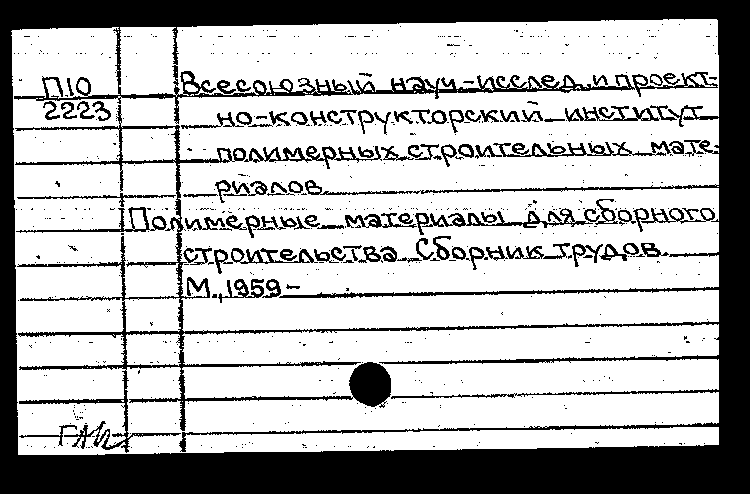 П10 Всесоюзный науч.-исслед. и проект-
2223 но-конструкторский институт
полимерных строительных мате-
риалов.
Полимерные материалы для сборного
строительства. Сборник трудов.
М., 1959-